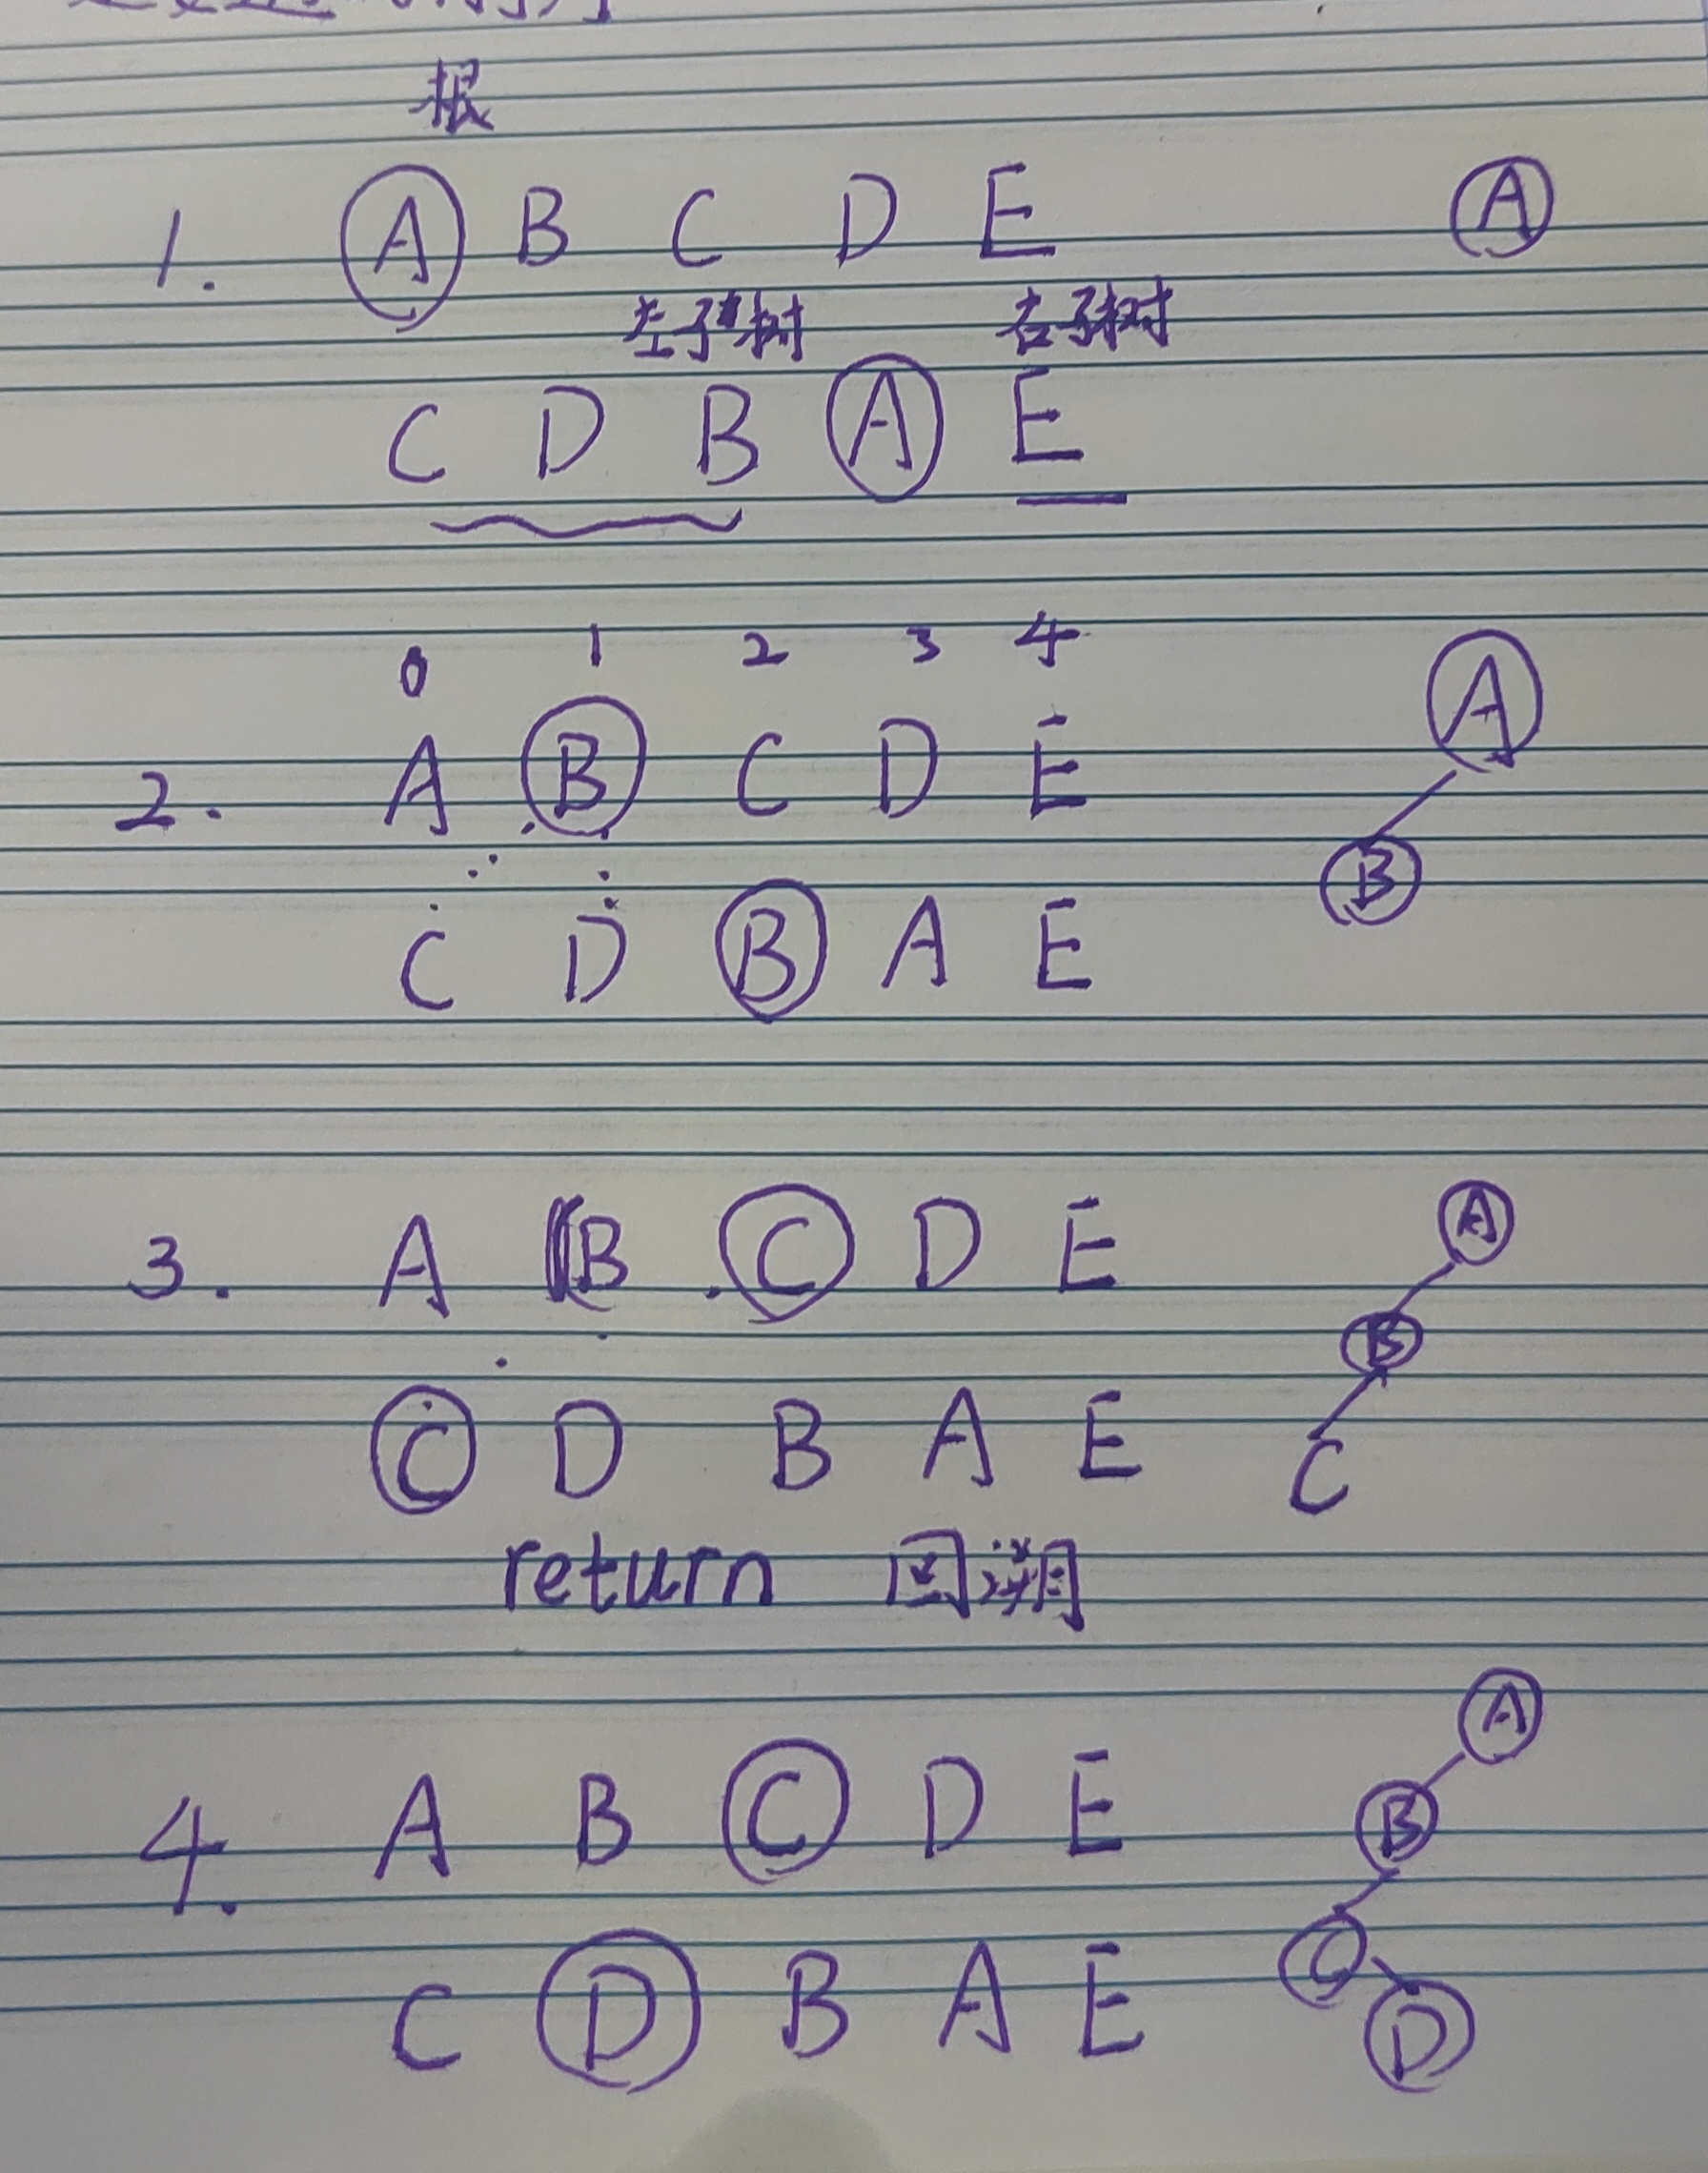 根
1. A B C D E A
左子树 右子树
C D B A E
0 1 2 3 4
2. A B C D E A
B
C D B A E
3. A B C D E A
B
C D B A E C
return 回溯
4. A B C D E A
B
C D B A E C
D